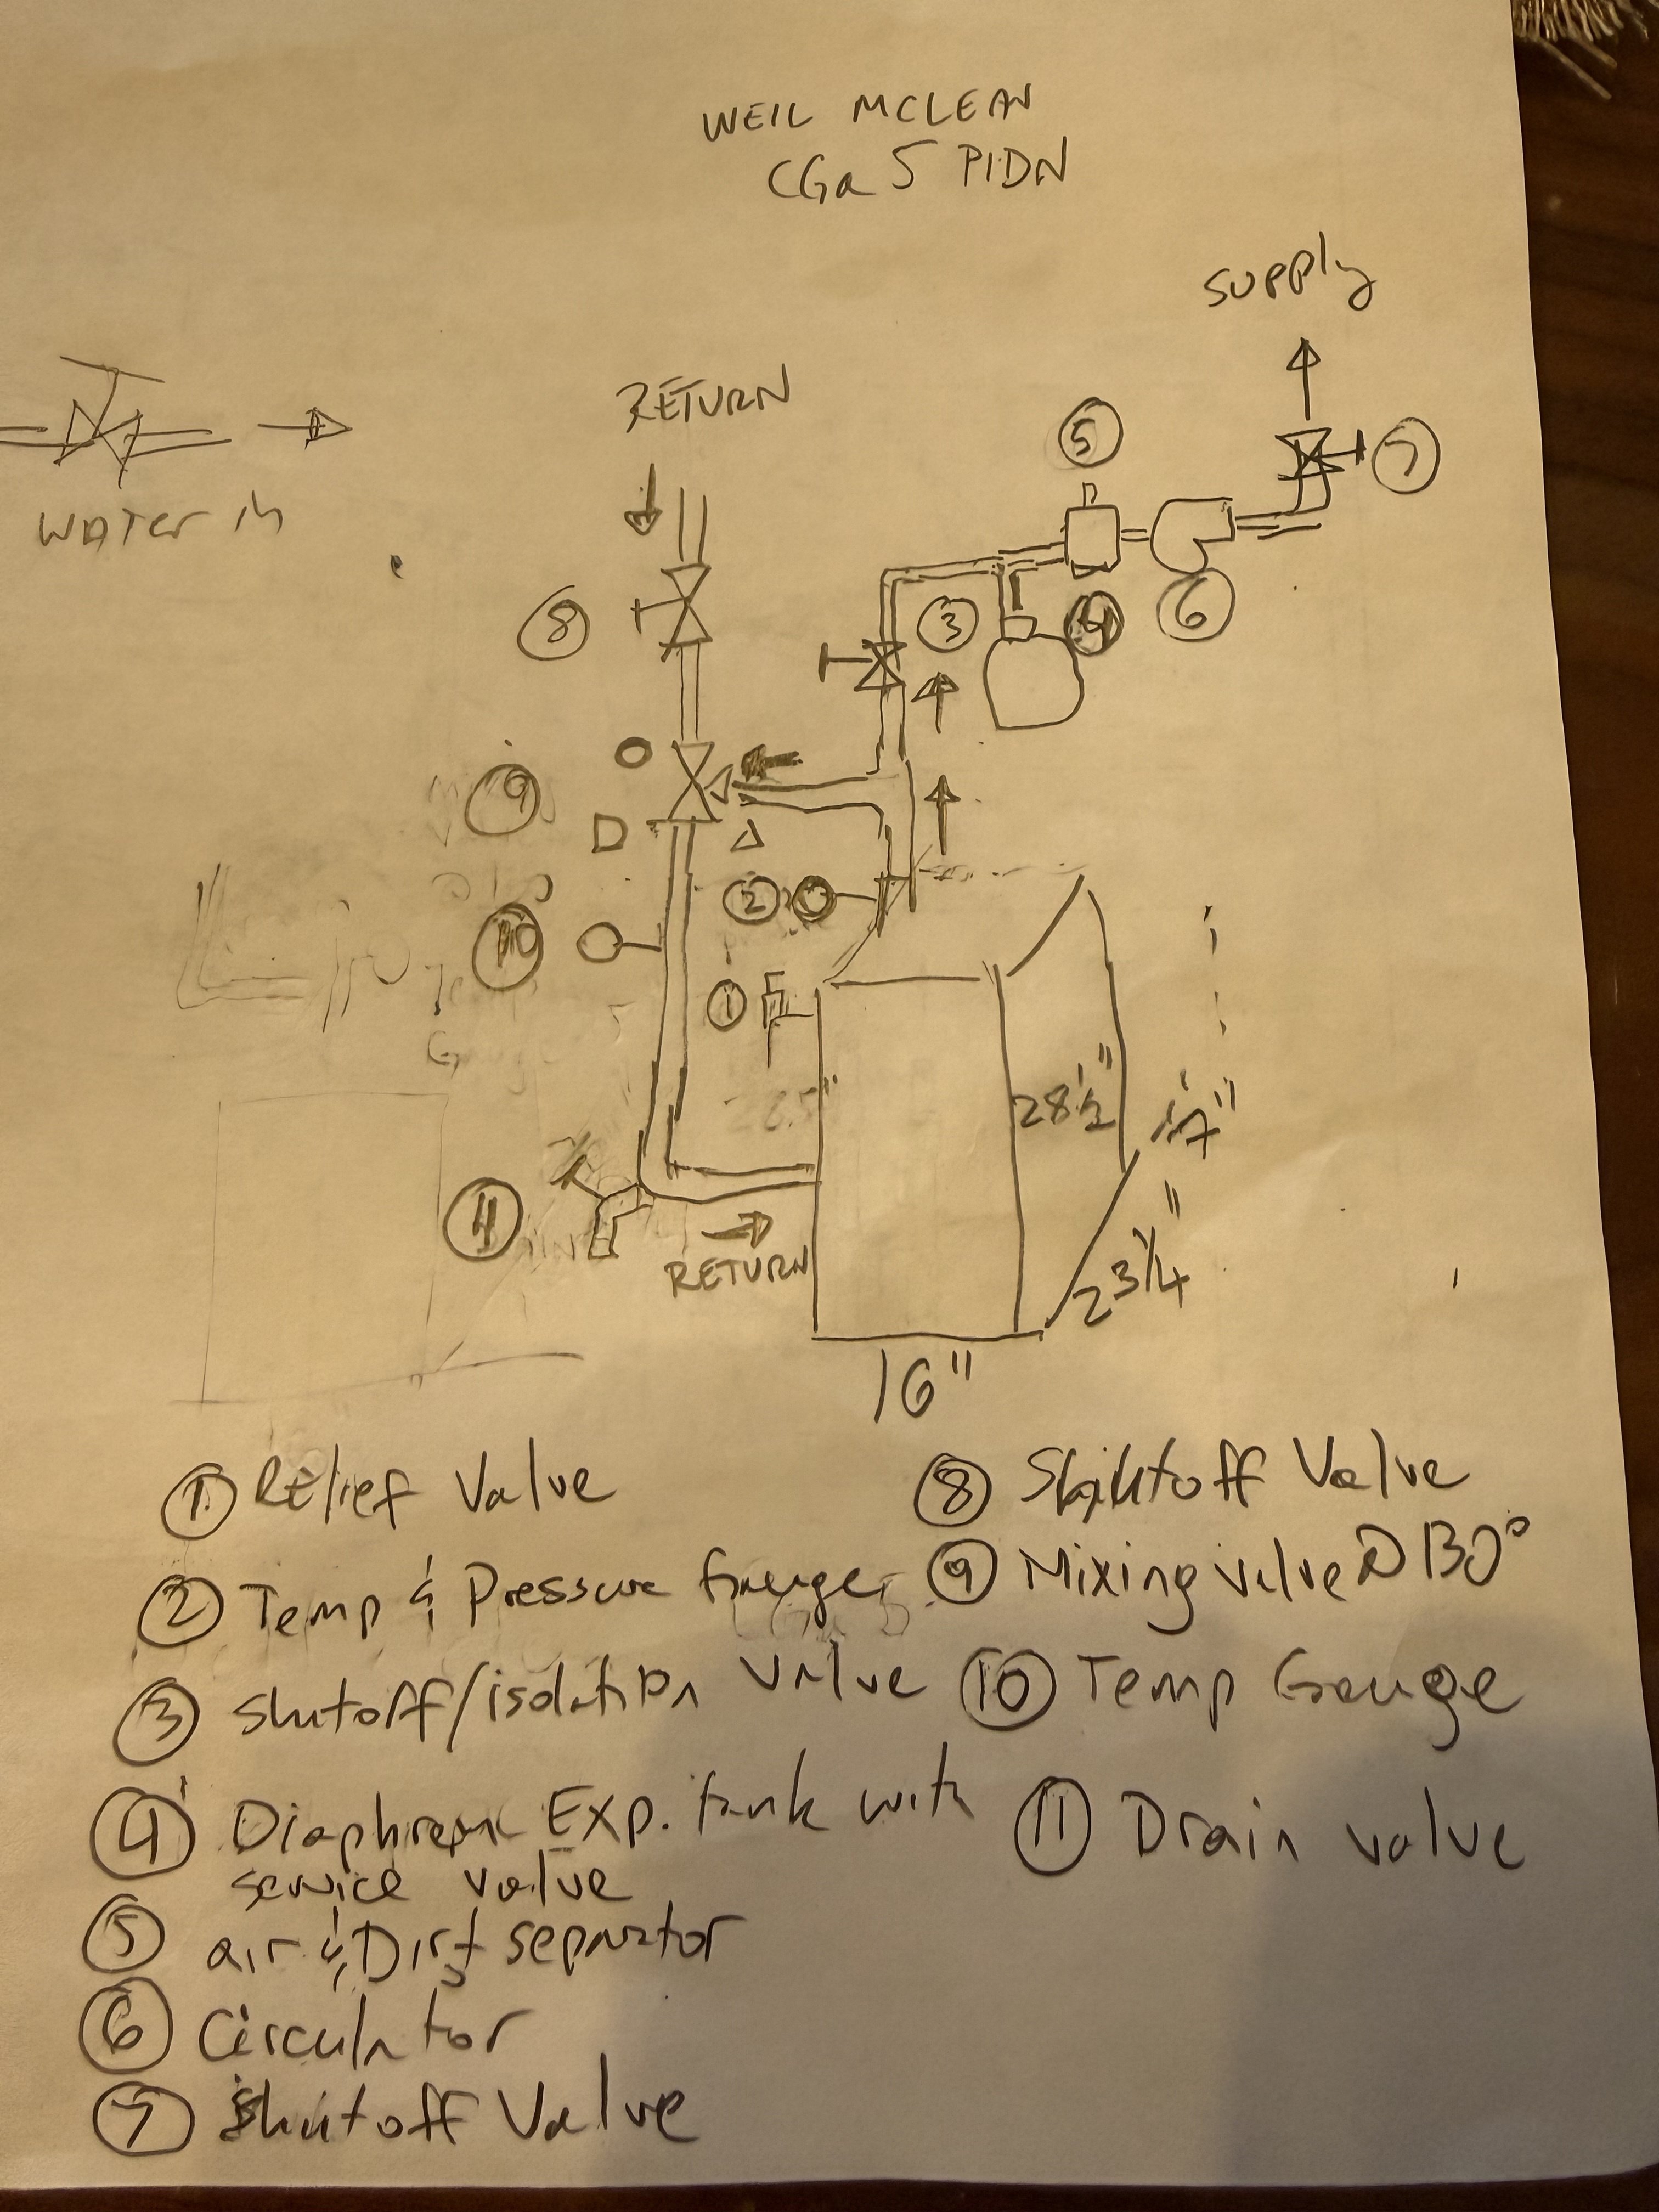 WEIL MCLEAN
CGa 5 PIDN
supply
RETURN
5
7
water in
8
3
4
6
9
2
10
1
28 1/2"
17"
11
RETURN
23 1/4"
16"
1 Relief Valve
2 Temp & Pressure Gauge
3 shutoff/isolation valve
4 Diaphragm Exp. tank with
service valve
5 air & Dirt separator
6 Circulator
7 Shutoff Valve
8 Shutoff Valve
9 Mixing valve @ 130°
10 Temp Gauge
11 Drain valve